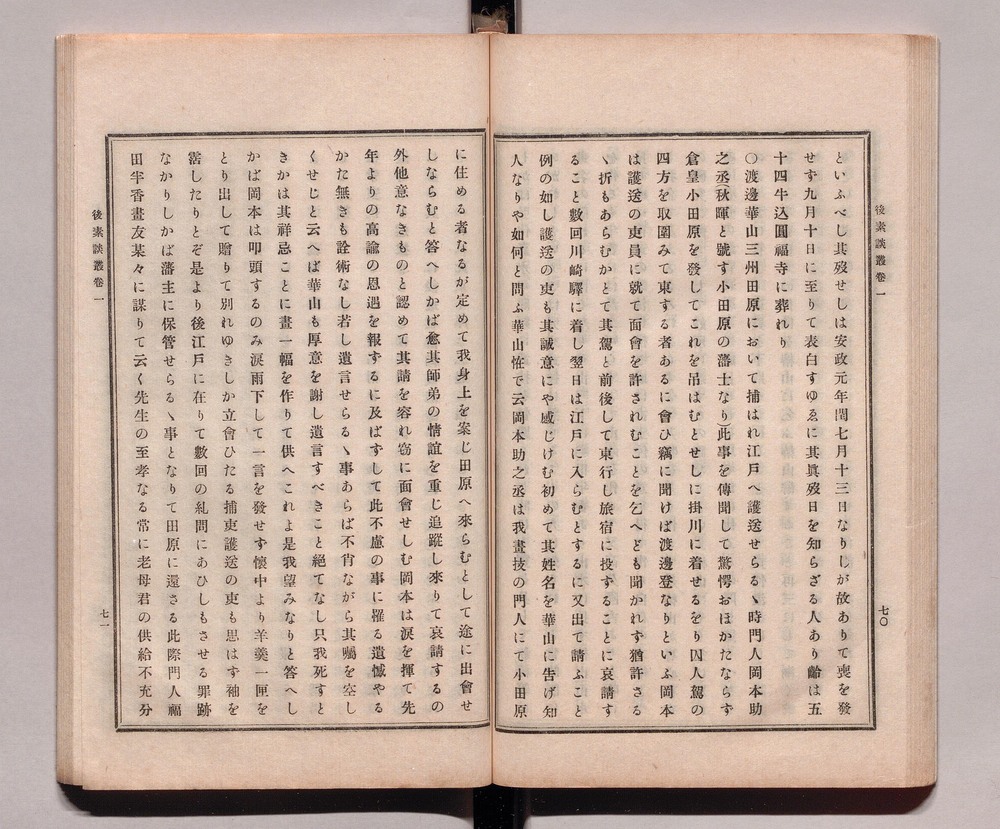 後素談叢卷一
七〇
といふべし其歿せしは安政元年閏七月十三日なりしが故ありて喪を發
せず九月十日に至りて表白すゆゑに其眞歿日を知らざる人あり齡は五
十四牛込圓福寺に葬れり
〇渡邊華山三州田原において捕はれ江戸へ護送せらるヽ時門人岡本助
之丞(秋暉と號す小田原の藩士なり)此事を傳聞して驚愕おほかたならず
倉皇小田原を發してこれを吊はむとせしに掛川に着せるをり囚人駕の
四方を取圍みて東する者あるに會ひ竊に聞けば渡邊登なりといふ岡本
は護送の吏員に就て面會を許されむことを乞へども聞かれず猶許さる
ヽ折もあらむかとて其駕と前後して東行し旅宿に投ずることに哀請す
ること數回川崎驛に着し翌日は江戸に入らむとするに又出て請ふこと
例の如し護送の吏も其誠意にや感じけむ初めて其姓名を華山に告げ知
人なりや如何と問ふ華山恠で云岡本助之丞は我畫技の門人にて小田原
に住める者なるが定めて我身上を案じ田原へ來らむとして途に出會せ
しならむと答へしかば愈其師弟の情誼を重じ追蹤し來りて哀請するの
外他意なきものと認めて其請を容れ窃に面會せしむ岡本は涙を揮て先
年よりの高諭の恩遇を報ずるに及ばずして此不慮の事に罹る遺憾やる
かた無きも詮術なし若し遺言せらるヽ事あらば不肖ながら其囑を空し
くせじと云へば華山も厚意を謝し遺言すべきこと絶てなし只我死すと
きかは其祥忌ことに畫一幅を作りて供へこれよ是我望みなりと答へし
かば岡本は叩頭するのみ涙雨下して一言を發せず懷中より羊羹一匣を
とり出して贈りて別れゆきしか立會ひたる捕吏護送の吏も思はず袖を
霑したりとぞ是より後江戸に在りて數回の糺問にあひしもさせる罪跡
なかりしかば藩主に保管せらるヽ事となりて田原に還さる此際門人福
田半香畫友某々に謀りて云く先生の至孝なる常に老母君の供給不充分
後素談叢卷一
七一